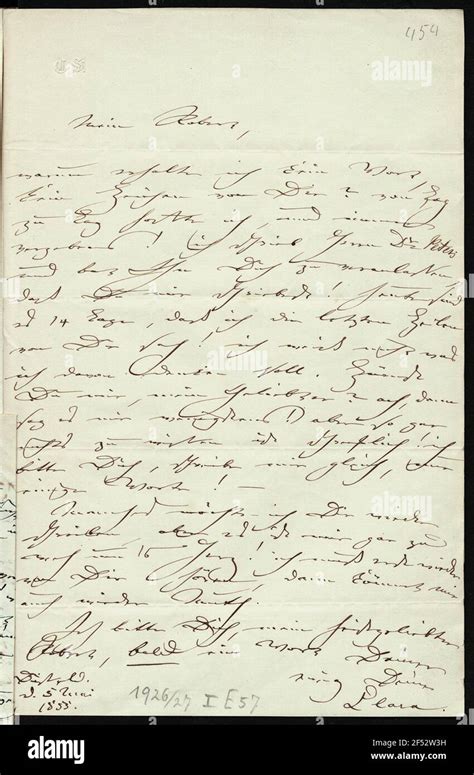 454
CS
Mein Robert,
warum erhalte ich kein Wort,
kein Zeichen von Dir? von Tag
zu Tag hoffte ich und immer
vergebens! ich schrieb Herrn Dr. Peters
und bat ihn Dich zu veranlassen
daß Du mir schriebest! heute sind
es 14 Tage, daß ich die letzten Zeilen
von Dir sah! ich weiß nicht was
ich davon denken soll. Zürnst
Du mir, mein Geliebter? ach dann
sag es mir wenigstens! aber so gar
nichts zu wissen ist schrecklich! ich
bitte Dich, schreibe mir gleich, nur
einige Worte! —
Manches möchte ich Dir wieder
schreiben, aber es ist mir gar zu
weh um's Herz! ich muß erst wieder
von Dir hören, dann kömmt mir
auch wieder Muth.
Ich bitte Dich, mein heißgeliebter
Robert, bald ein Wort Deiner
ewig Deinen
Clara.
Düsseld.
d. 5 Mai
1855.
1926/27 I E 57
alamy
alamy
Image ID: 2F52W3H
www.alamy.com